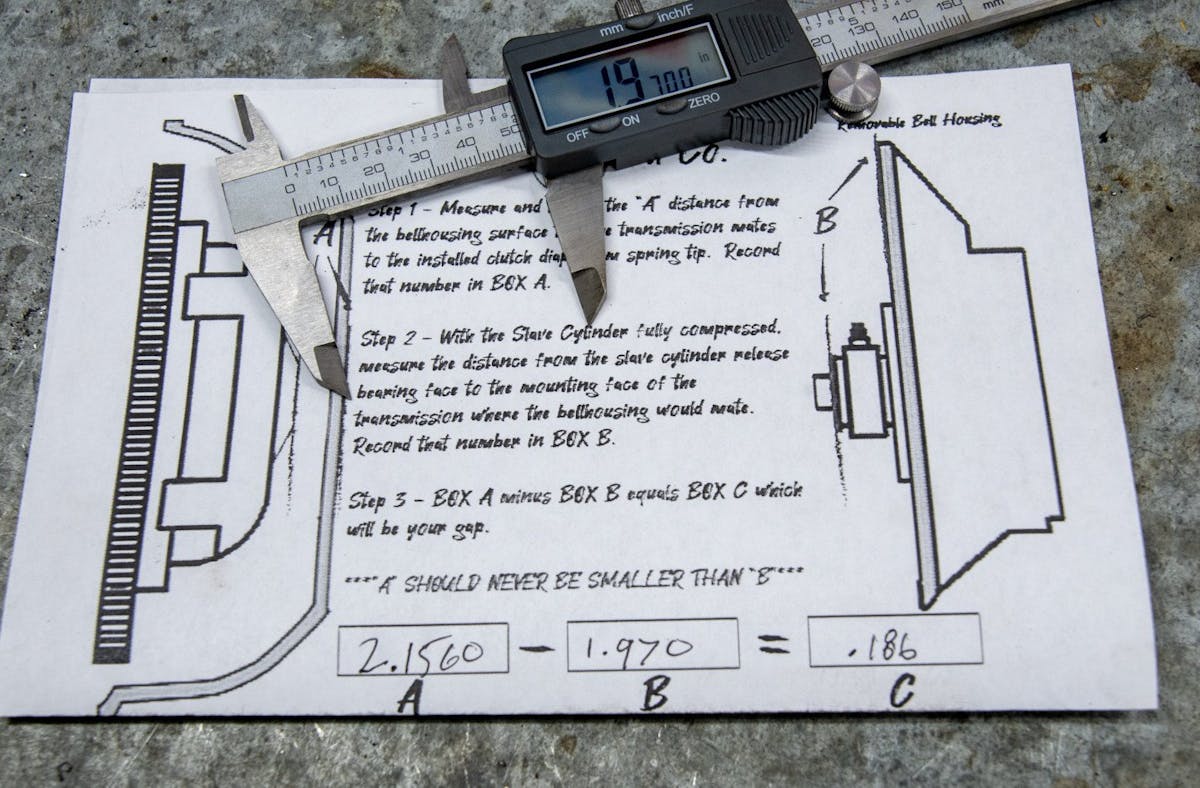 mm inch/F
1.9700 in
OFF ON ZERO
0 10 20 30 40 50
20 130 140 150 mm
Removable Bell Housing
Co.
A
B
Step 1 - Measure and the "A" distance from
the bellhousing surface transmission mates
to the installed clutch spring tip. Record
that number in BOX A.
Step 2 - With the Slave Cylinder fully compressed,
measure the distance from the slave cylinder release
bearing face to the mounting face of the
transmission where the bellhousing would mate.
Record that number in BOX B.
Step 3 - BOX A minus BOX B equals BOX C which
will be your gap.
****"A" SHOULD NEVER BE SMALLER THAN "B"****
2.1560 - 1.970 = .186
A B C